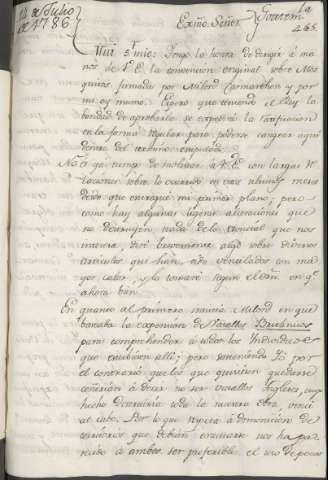 14 de Julio
de 1786
Exmo. Señor
465.
Mui Sr. mio: Tengo la honra de dirigir á ma
nos de V.E. la convencion original sobre Mos
quitos firmada por Milord Carmarthen y por
mi oy mismo. Espero que teniendo el Rey la
bondad de aprobarla se expedirá la ratificacion
en la forma regular para poderse cangear aqui
dentro del termino
No á V.E. con largas re
laciones sobre lo ocurrido en tres ultimos meses
desde que entregué mi primer plano; pero
como hay algunas ligeras alteraciones que
no destruyen nada de lo esencial que nos
interesa, diré brevemente algo sobre diversos
articulos que han sido ventilados con ma
yor calor, y lo tomaré segun el orn. en qe
ahora van.
En quanto al primero Milord en que
bastaba la expresion de Vasallos Britanicos
para comprehender á todos los Individuos
que existiesen alli; pero sosteniendo Yo por
el contrario que los que quisiesen quedarse
á decir no ser Vasallos Ingleses, cuyo
hecho destruiria toda la nuestra obra, vinó
al cabo. Por lo que respeta á denominacion de
territorios que debian evacuarse nos ha pa
recido á ambos ser preferible el uso de pocas